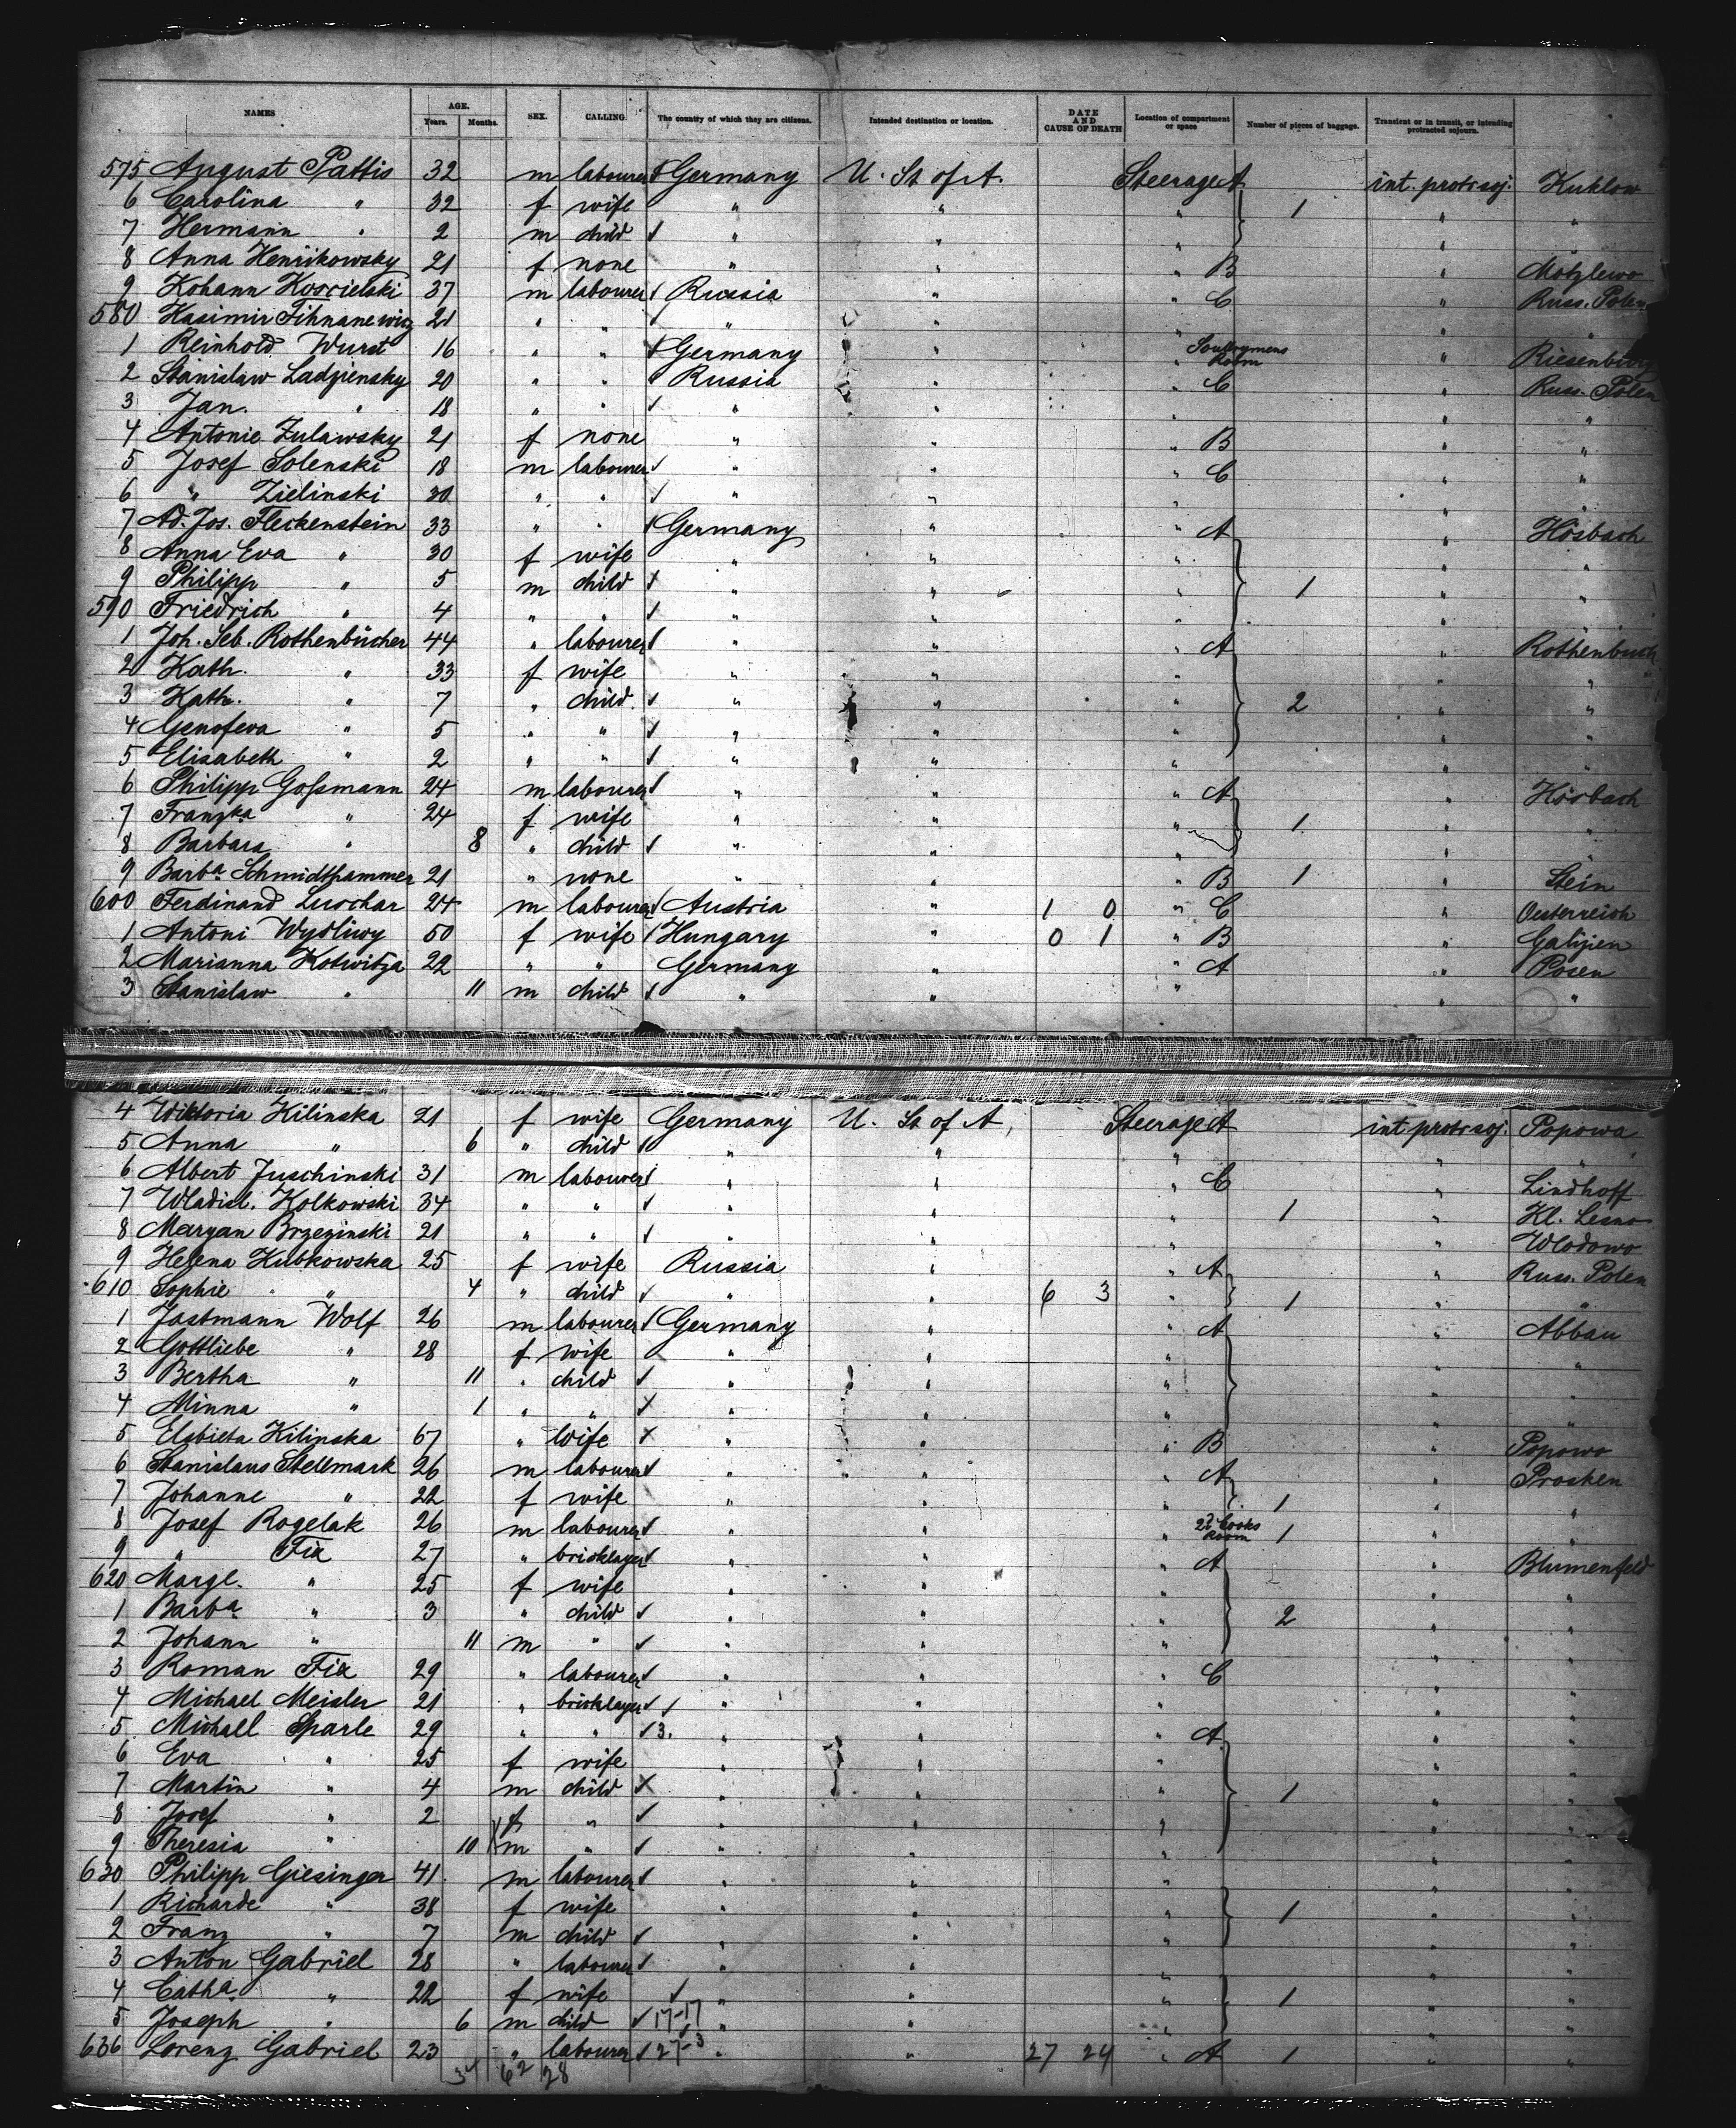 NAMES AGE. Years. Months. SEX. CALLING. The country of which they are citizens. Intended destination or location. DATE AND CAUSE OF DEATH Location of compartment or space Number of pieces of baggage. Transient or in transit, or intending protracted sojourn.
575 August Pattis 32 m labourer Germany U. St of A. Steerage A int. protr soj. Kuhlow
6 Carolina " 32 f wife " " " 1 " "
7 Hermann " 2 m child " " " "
8 Anna Henrikowsky 21 f none " " " B "
9 Johann Koscielski 37 m labourer Russia " " C " Russ. Polen
580 Kasimir 21 " " " " " "
1 Reinhold Wurst 16 " " Germany " Room " Riesenburg
2 Stanislaw Ladziensky 20 " " Russia " " C " Russ. Polen
3 Jan. " 18 " " " " " " "
4 Antonie Zulawsky 21 f none " " " B " "
5 Josef Solenski 18 m labourer " " " C " "
6 " Zielinski 30 " " " " " "
7 Ad. Jos. Fleckenstein 33 " " Germany " " A " Hösbach
8 Anna Eva " 30 f wife " " " " "
9 Philipp " 5 m child " " " 1 " "
590 Friedrich " 4 " " " " " " "
1 Joh. Seb. Rothenbücher 44 " labourer " " " A " Rothenbuch
2 Kath. " 33 f wife " " " " "
3 Kath. " 7 " child " " " 2 " "
4 Genofeva " 5 " " " " " " "
5 Elisabeth " 2 " " " " " " "
6 Philipp Goßmann 24 m labourer " " " A " Hösbach
7 Franzka " 24 f wife " " " 1 " "
8 Barbara " 8 " child " " " " "
9 Barba Schmidthammer 21 " none " " " B 1 " Stein
600 Ferdinand Luschar 24 m labourer Austria " 1 0 " C " Oesterreich
1 Antoni Wydliwy 50 f wife Hungary " 0 1 " B " Galizien
2 Marianna Kotwitza 22 " " Germany " " A " Posen
3 Stanislaw " 11 m child " " " " "
4 Wiktoria Kilinska 21 f wife Germany U. St of A, Steerage A int protr soj. Popowa
5 Anna " 6 " child " " " " "
6 Albert Juschinski 31 m labourer " " " C " Lindhoff
7 Wladisl. Kolkowski 34 " " " " " 1 " Kl. Lesno
8 Maryan Brzezinski 21 " " " " " Wlodowo
9 Helena Kubkowska 25 f wife Russia " " A " Russ. Polen
610 Sophie " 4 " child " " 6 3 " 1 " "
1 Jastmann Wolf 26 m labourer Germany " " A " Abbau
2 Gottliebe " 28 f wife " " " " "
3 Bertha " 11 " child " " " "
4 Minna " 1 " " " " " " "
5 Elsbieta Kilinska 67 " wife " " " B " Popowo
6 Stanislaus Stellmark 26 m labourer " " " A " Prosken
7 Johanne " 22 f wife " " " 1 " "
8 Josef Rogelak 26 m labourer " " " 2d Cooks Room 1 " "
9 " Fix 27 " bricklayer " " " A " Blumenfeld
620 Margt. " 25 f wife " " " " "
1 Barba " 3 " child " " " 2 " "
2 Johann " 11 m " " " " " "
3 Roman Fix 29 " labourer " " " C " "
4 Michael Meisler 21 " bricklayer " " " " "
5 Michael Sparle 29 " " 3. " " " A " "
6 Eva " 25 f wife " " " " "
7 Martin " 4 m child " " " 1 " "
8 Josef " 2 f " " " " " "
9 Theresia " 10 m " " " " " "
630 Philipp Giesinger 41 m labourer " " " " "
1 Richarde " 38 f wife " " " 1 " "
2 Franz " 7 m child " " " " "
3 Anton Gabriel 28 " labourer " " " " "
4 Catha. " 22 f wife " " " 1 " "
5 Joseph " 6 m child 17-17 " " " " "
636 Lorenz Gabriel 23 " labourer 27-3 " " 27 24 " A 1 " "
34 62 28